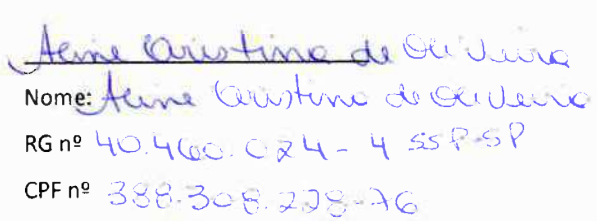 Aline Cristina de Oliveira
Nome: Aline Cristina de Oliveira
RG nº 40.460.024-4 SSP-SP
CPF nº 388.308.228-76